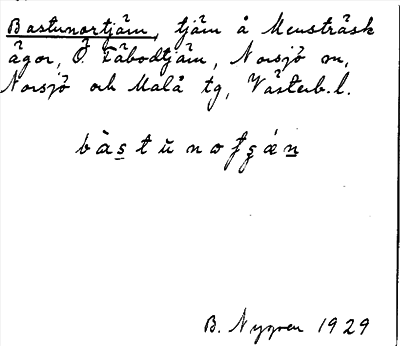 Bastunortjärn, tjärn å Mensträsk
ägor, Ö Fäbodtjärn, Norsjö sn,
Norsjö och Malå tg, Västerb. l.
B. Nygren 1929